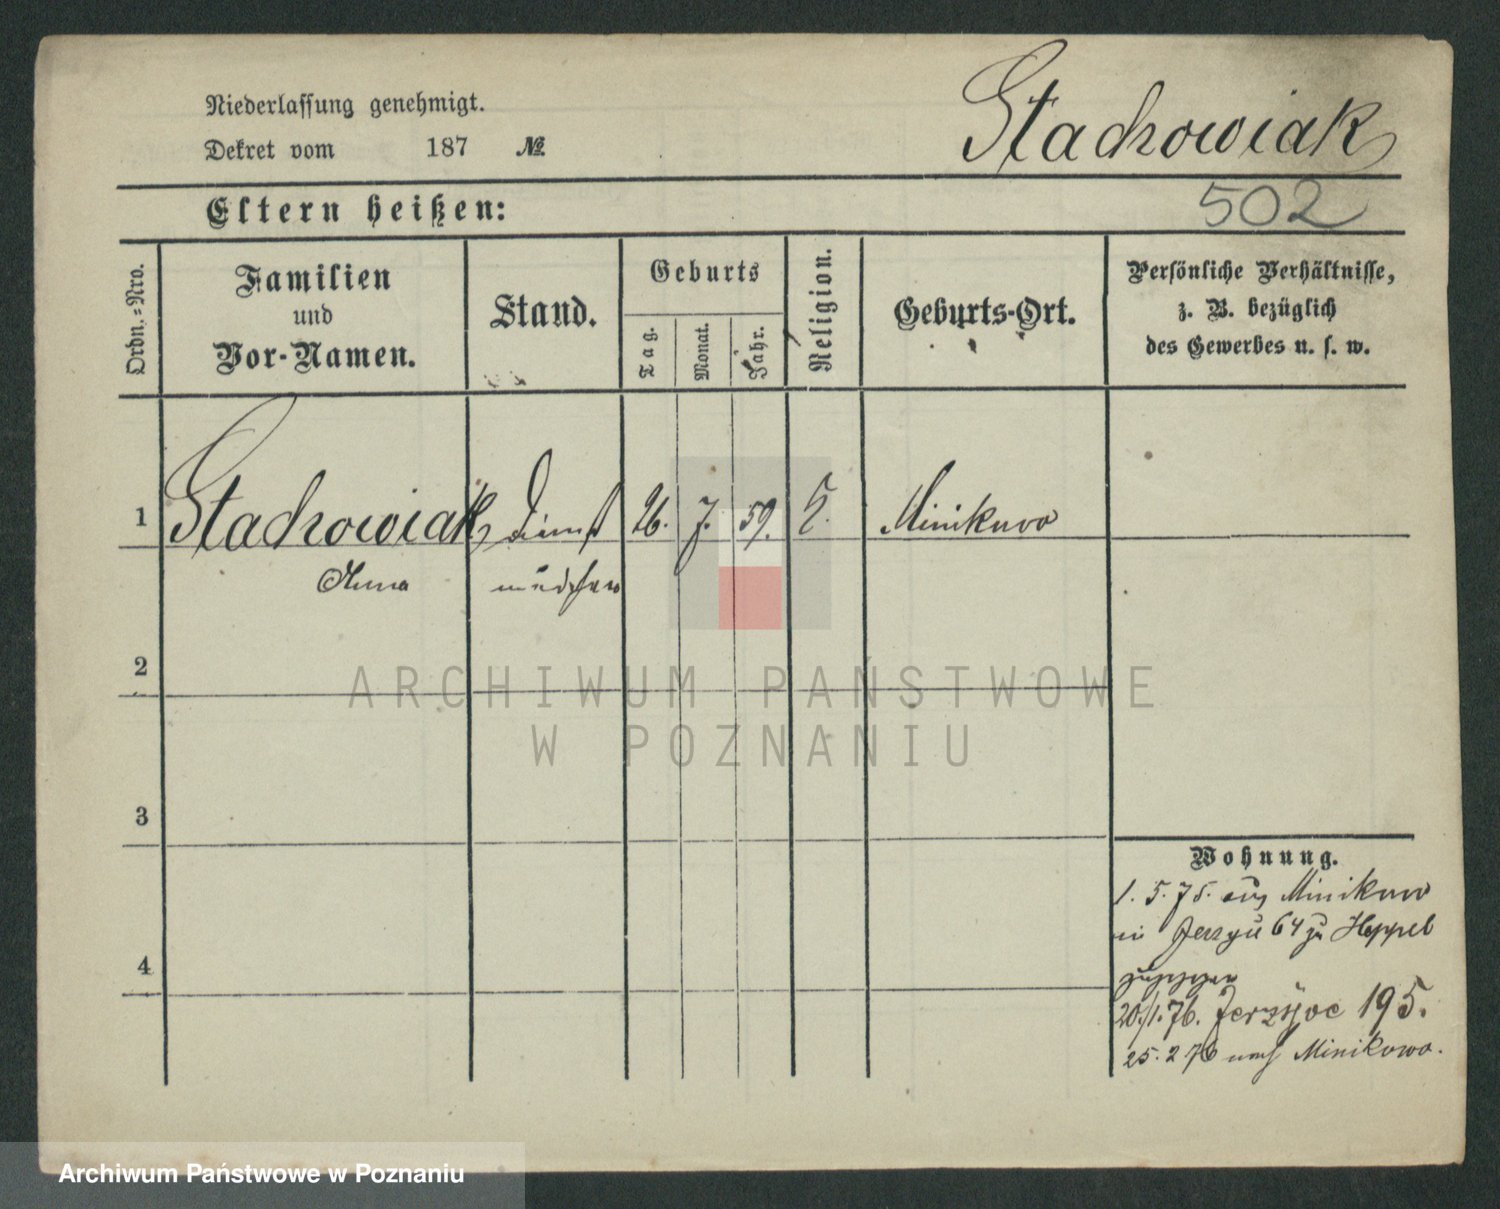 Niederlassung genehmigt.
Dekret vom 187 №
Stachowiak
Eltern heißen:
502
Ordn.-Nro.
Familien
und
Vor-Namen.
Stand.
Geburts
Tag.
Monat.
Jahr.
Religion.
Geburts-Ort.
Persönliche Verhältnisse,
z. B. bezüglich
des Gewerbes u. s. w.
1 Stachowiak Dienst 26. 7. 59. Minikowo
Anna mädchen
2
ARCHIWUM PAŃSTWOWE
W POZNANIU
3
Wohnung.
1. 5. 75. aus Minikowo
in 64 zu Heppel
4
zugezogen
20./1. 76. Jerzyce 195.
25. 2 76 nach Minikowo.
Archiwum Państwowe w Poznaniu